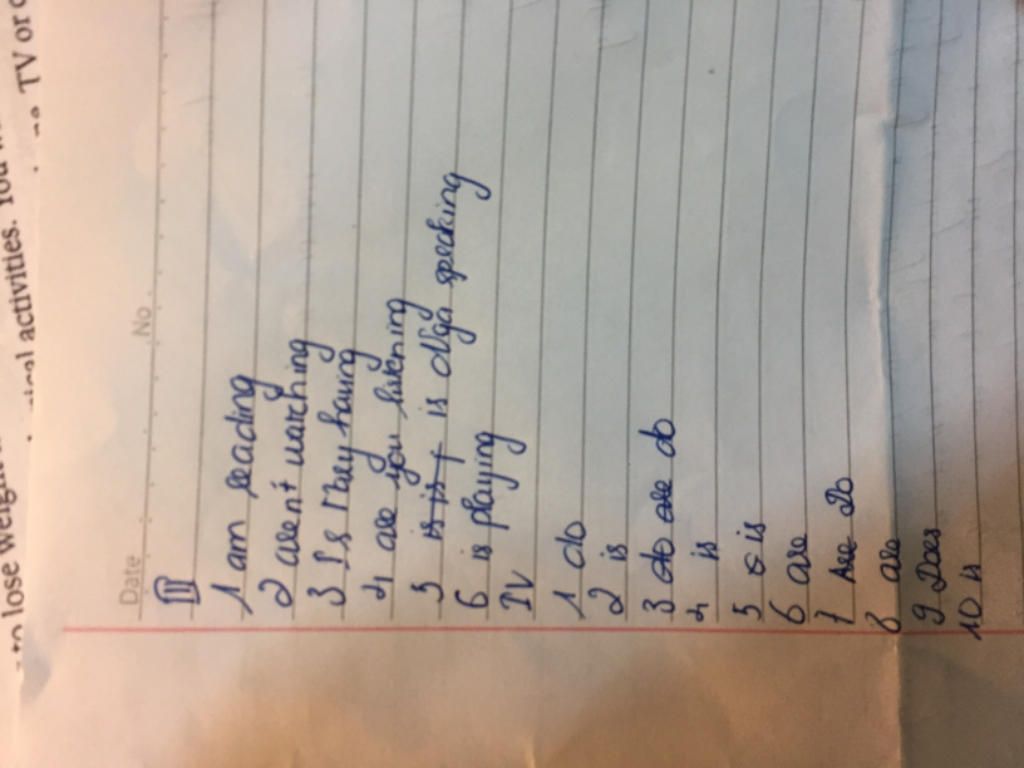 to lose weigh
ical activities. You
TV or
Date
No
III
1 am reading
2 aren't watching
3 Is they having
4 are you listening
5 is is f is olga speaking
6 is playing
IV
1 do
2 is
3 do are do
4 is
5 is
6 are
7 Are do
8 are
9 Does
10 is